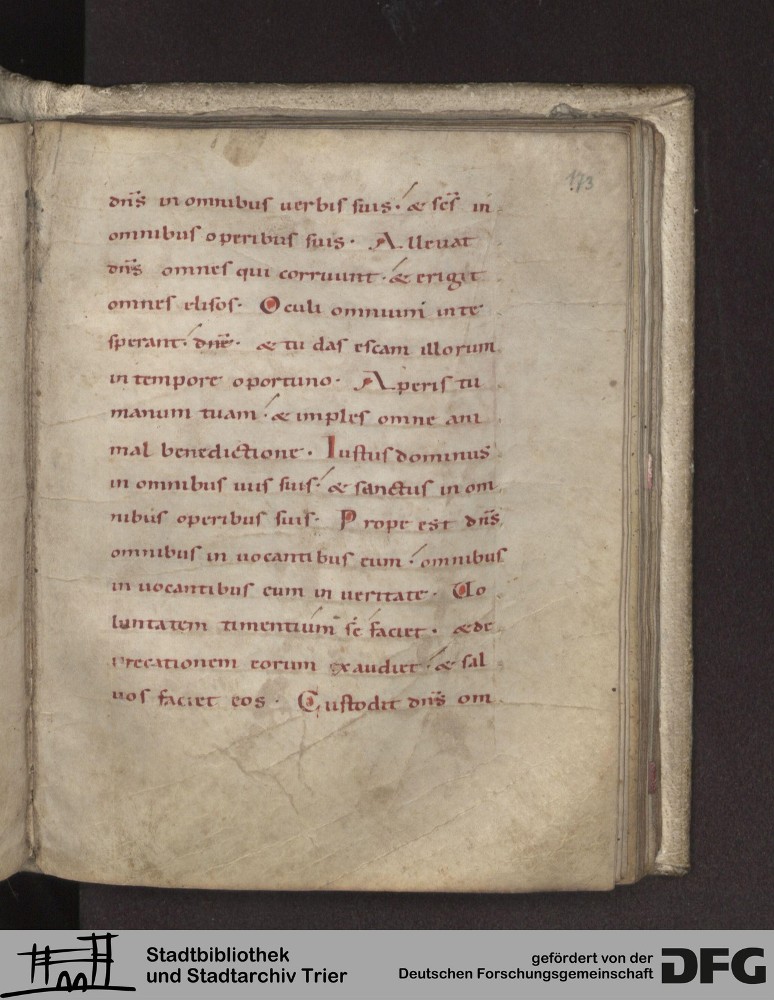 173
dn̄s in omnibus uerbis suis · & sc̄s in
omnibus operibus suis · Alleuat
dn̄s omnes qui corruunt · & erigit
omnes elisos · Oculi omnium in te
sperant · dn̄e · & tu das escam illorum
in tempore oportuno · Aperis tu
manum tuam · & imples omne ani
mal benedictione · Iustus dominus
in omnibus uiis suis · & sanctus in om
nibus operibus suis · Prope est dn̄s
omnibus inuocantibus eum · omnibus
inuocantibus eum in ueritate · Uo
luntatem timentium se faciet · & de
precationem eorum exaudiet · & sal
uos faciet eos · Custodit dn̄s om
Stadtbibliothek
und Stadtarchiv Trier
gefördert von der
Deutschen Forschungsgemeinschaft
DFG